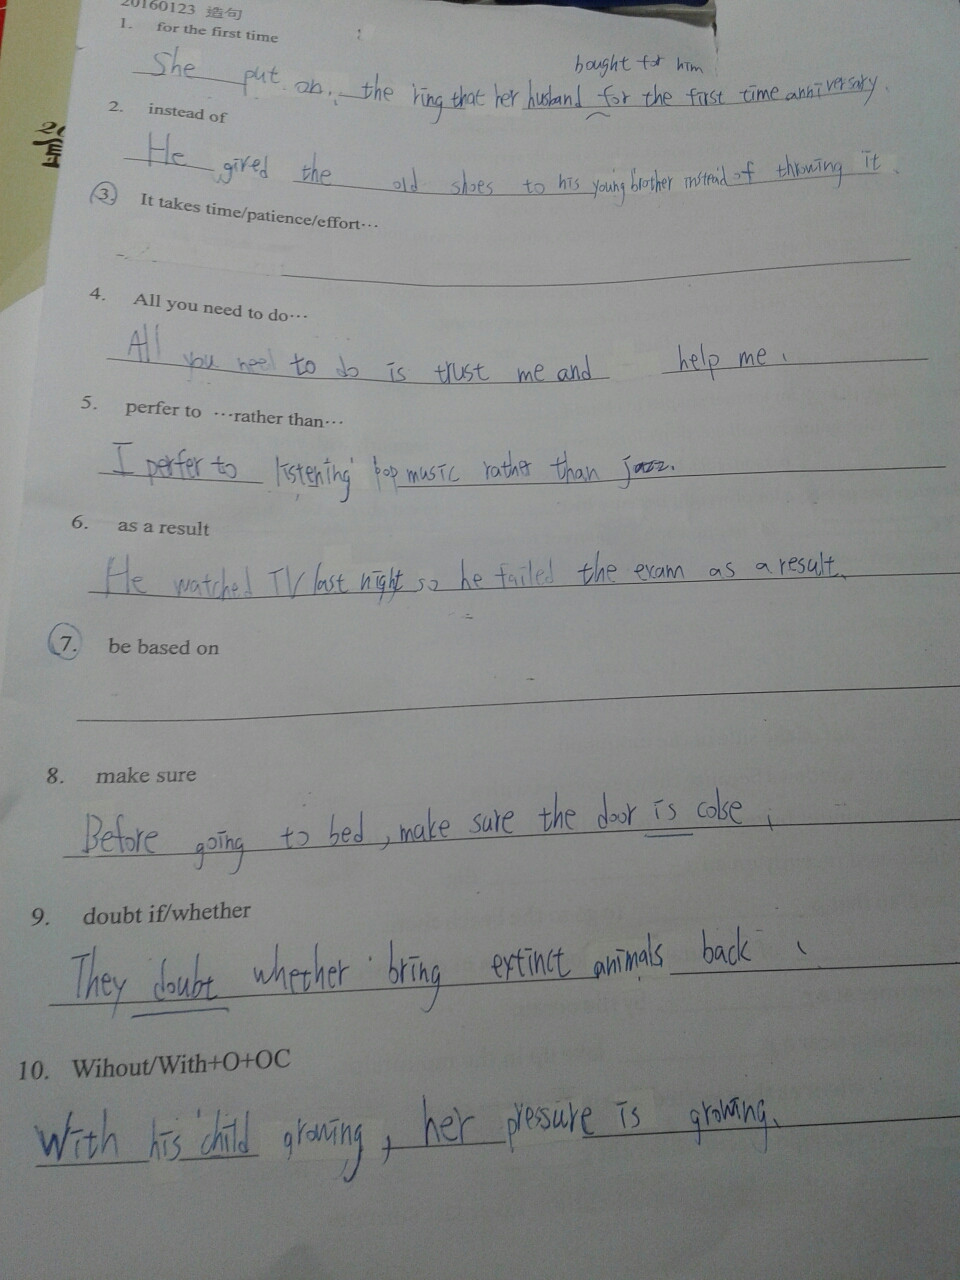 20160123 造句
1. for the first time
bought for him
She put on. the ring that her husband for the first time anniversary.
2. instead of
He gived the old shoes to his young brother instead of throwing it.
3. It takes time/patience/effort…
4. All you need to do…
All you need to do is trust me and help me.
5. perfer to …rather than…
I perfer to listening pop music rather than jazz.
6. as a result
He watched TV last night so he failed the exam as a result.
7. be based on
8. make sure
Before going to bed, make sure the door is colse.
9. doubt if/whether
They doubt whether bring extinct animals back.
10. Wihout/With+O+OC
With his child growing, her pressure is growing.